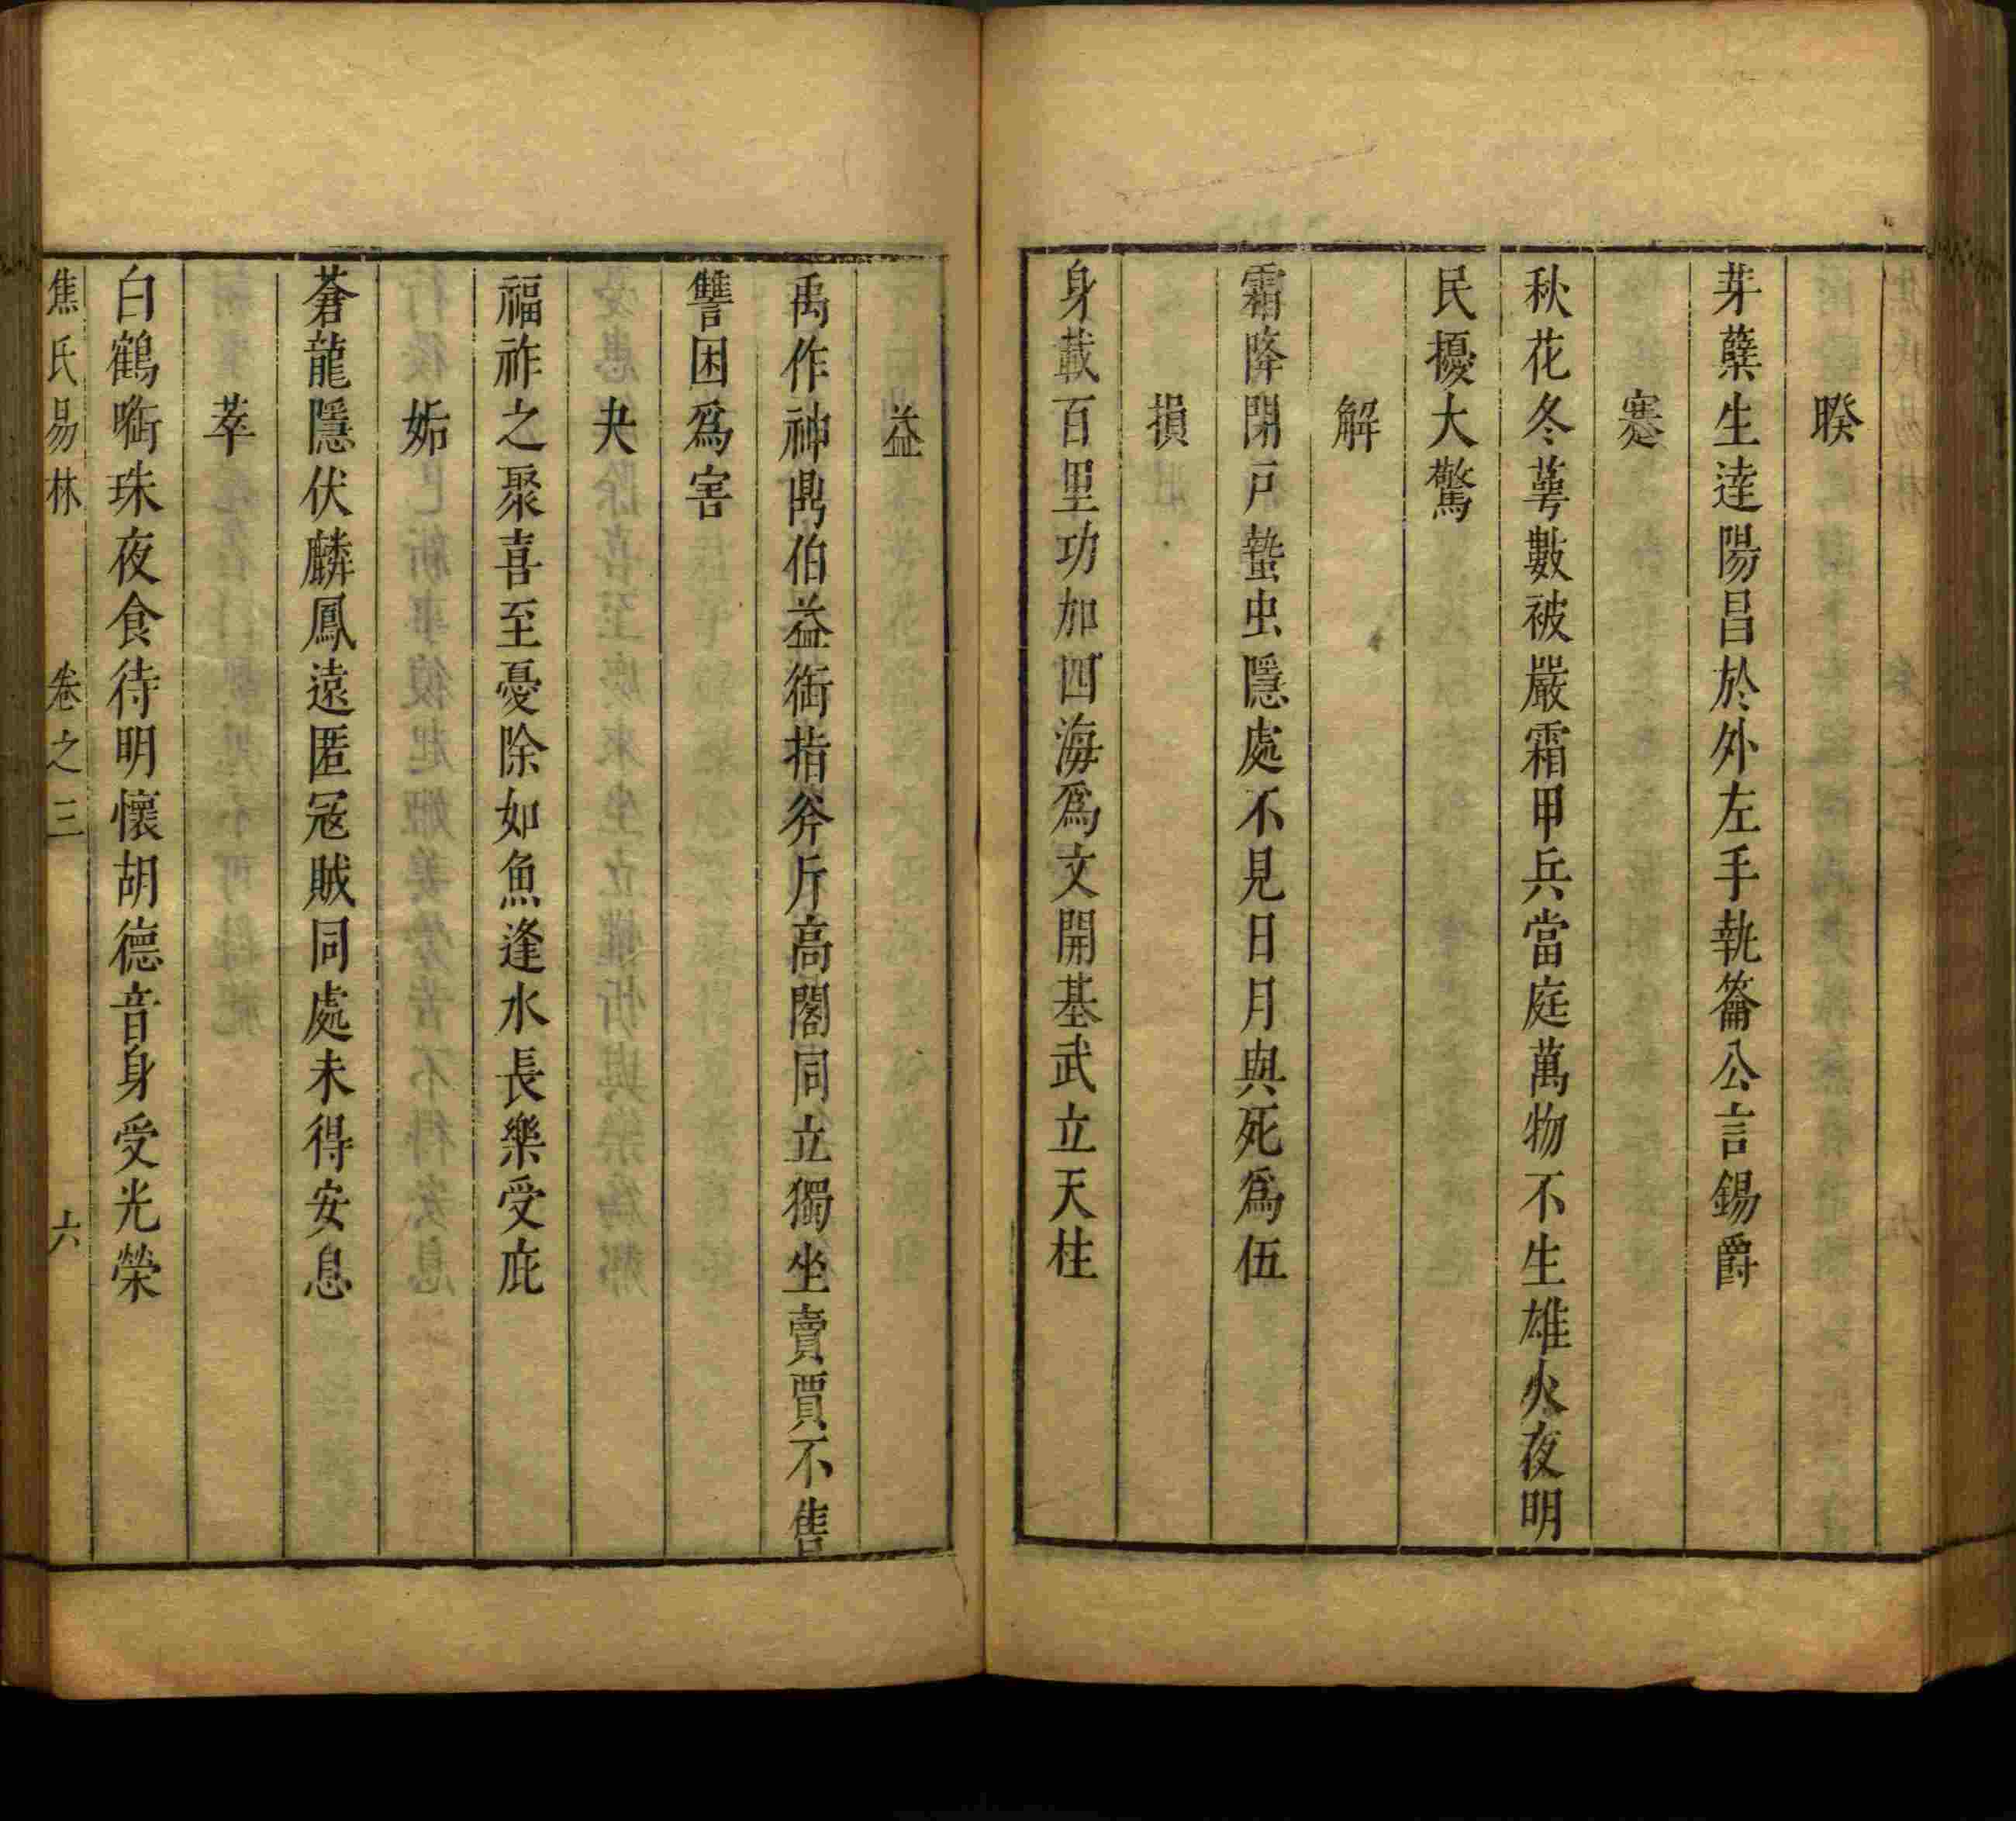 睽
芽蘖生達陽昌於外左手執籥公言錫爵
蹇
秋花冬萼數被嚴霜甲兵當庭萬物不生雄火夜明
民擾大驚
解
霜降閉戶蟄虫隱處不見日月與死爲伍
損
身載百里功加四海爲文開基武立天柱
益
禹作神鼎伯益銜指斧斤高閣同立獨坐賣賈不售
讐困爲害
夬
福祚之聚喜至憂除如魚逢水長樂受庇
姤
蒼龍隱伏麟鳳遠匿冦賊同處未得安息
萃
白鶴㗸珠夜食待明懷胡德音身受光榮
焦氏易林 卷之三 六